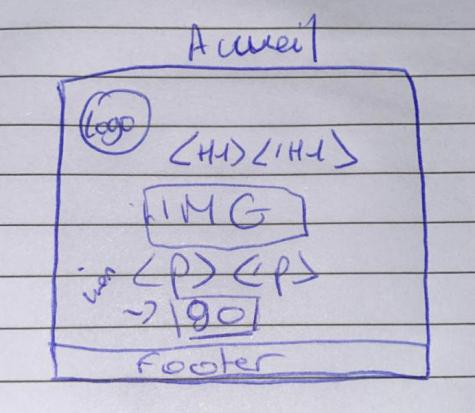 Accueil
Logo
<H1></H1>
IMG
lien <p></p>
-> go
Footer